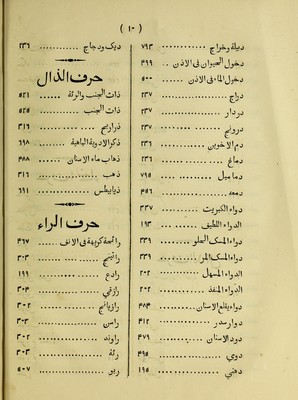 ( ١٠ )
دبيلة وخراج ............ ٧٩٣
دخول الحيوان فى الاذن .. ٤٩٩
دخول الماء فى الاذن ..... ٥٠٠
دراج ............ ٢٣٧
دردار ............ ٢٣٧
درونج ............ ٢٣٧
دم الاخوين ............ ٢٣٦
دماغ ............ ٢٣٦
دماميل ............ ٧٩٥
دمعه ............ ٤٥٦
دواء الكبريت ............ ٣٣٧
الدواء اللطيف ............ ١٩٣
دواء المسك الحلو ............ ٣٣٩
دواء المسك المر ............ ٣٣٩
الدواء المسهل ............ ٢٠٢
الدواء المنفذ ............ ٢٠٢
دواء يقلع الاسنان ............ ٤٨٤
دوار سدر ............ ٤١٢
دود الاسنان ............ ٤٧٩
دوي ............ ٤٩٥
دهني ............ ١٩٥
ديك ودجاج ............ ٢٣٦
حرف الذال
ذات الجنب والرئة .. ٥٢١
ذات الجنب ............ ٥٢٥
ذراريح ............ ٣١٦
ذكر الادوية الباهية .. ٦٩٨
ذهاب ماء الاسنان ... ٤٨٨
ذهب ............ ٣١٦
ذيابيطس ............ ٦٩١
حرف الراء
رائحة كريهة فى الانف ... ٤٦٧
راتينج ............ ٣٠٣
رادع ............ ١٩٩
رازقي ............ ٣٠٤
رازيانج ............ ٣٠٢
راسن ............ ٣٠٣
راوند ............ ٣٠٢
رئة ............ ٣٠٣
ربو ............ ٥٠٧